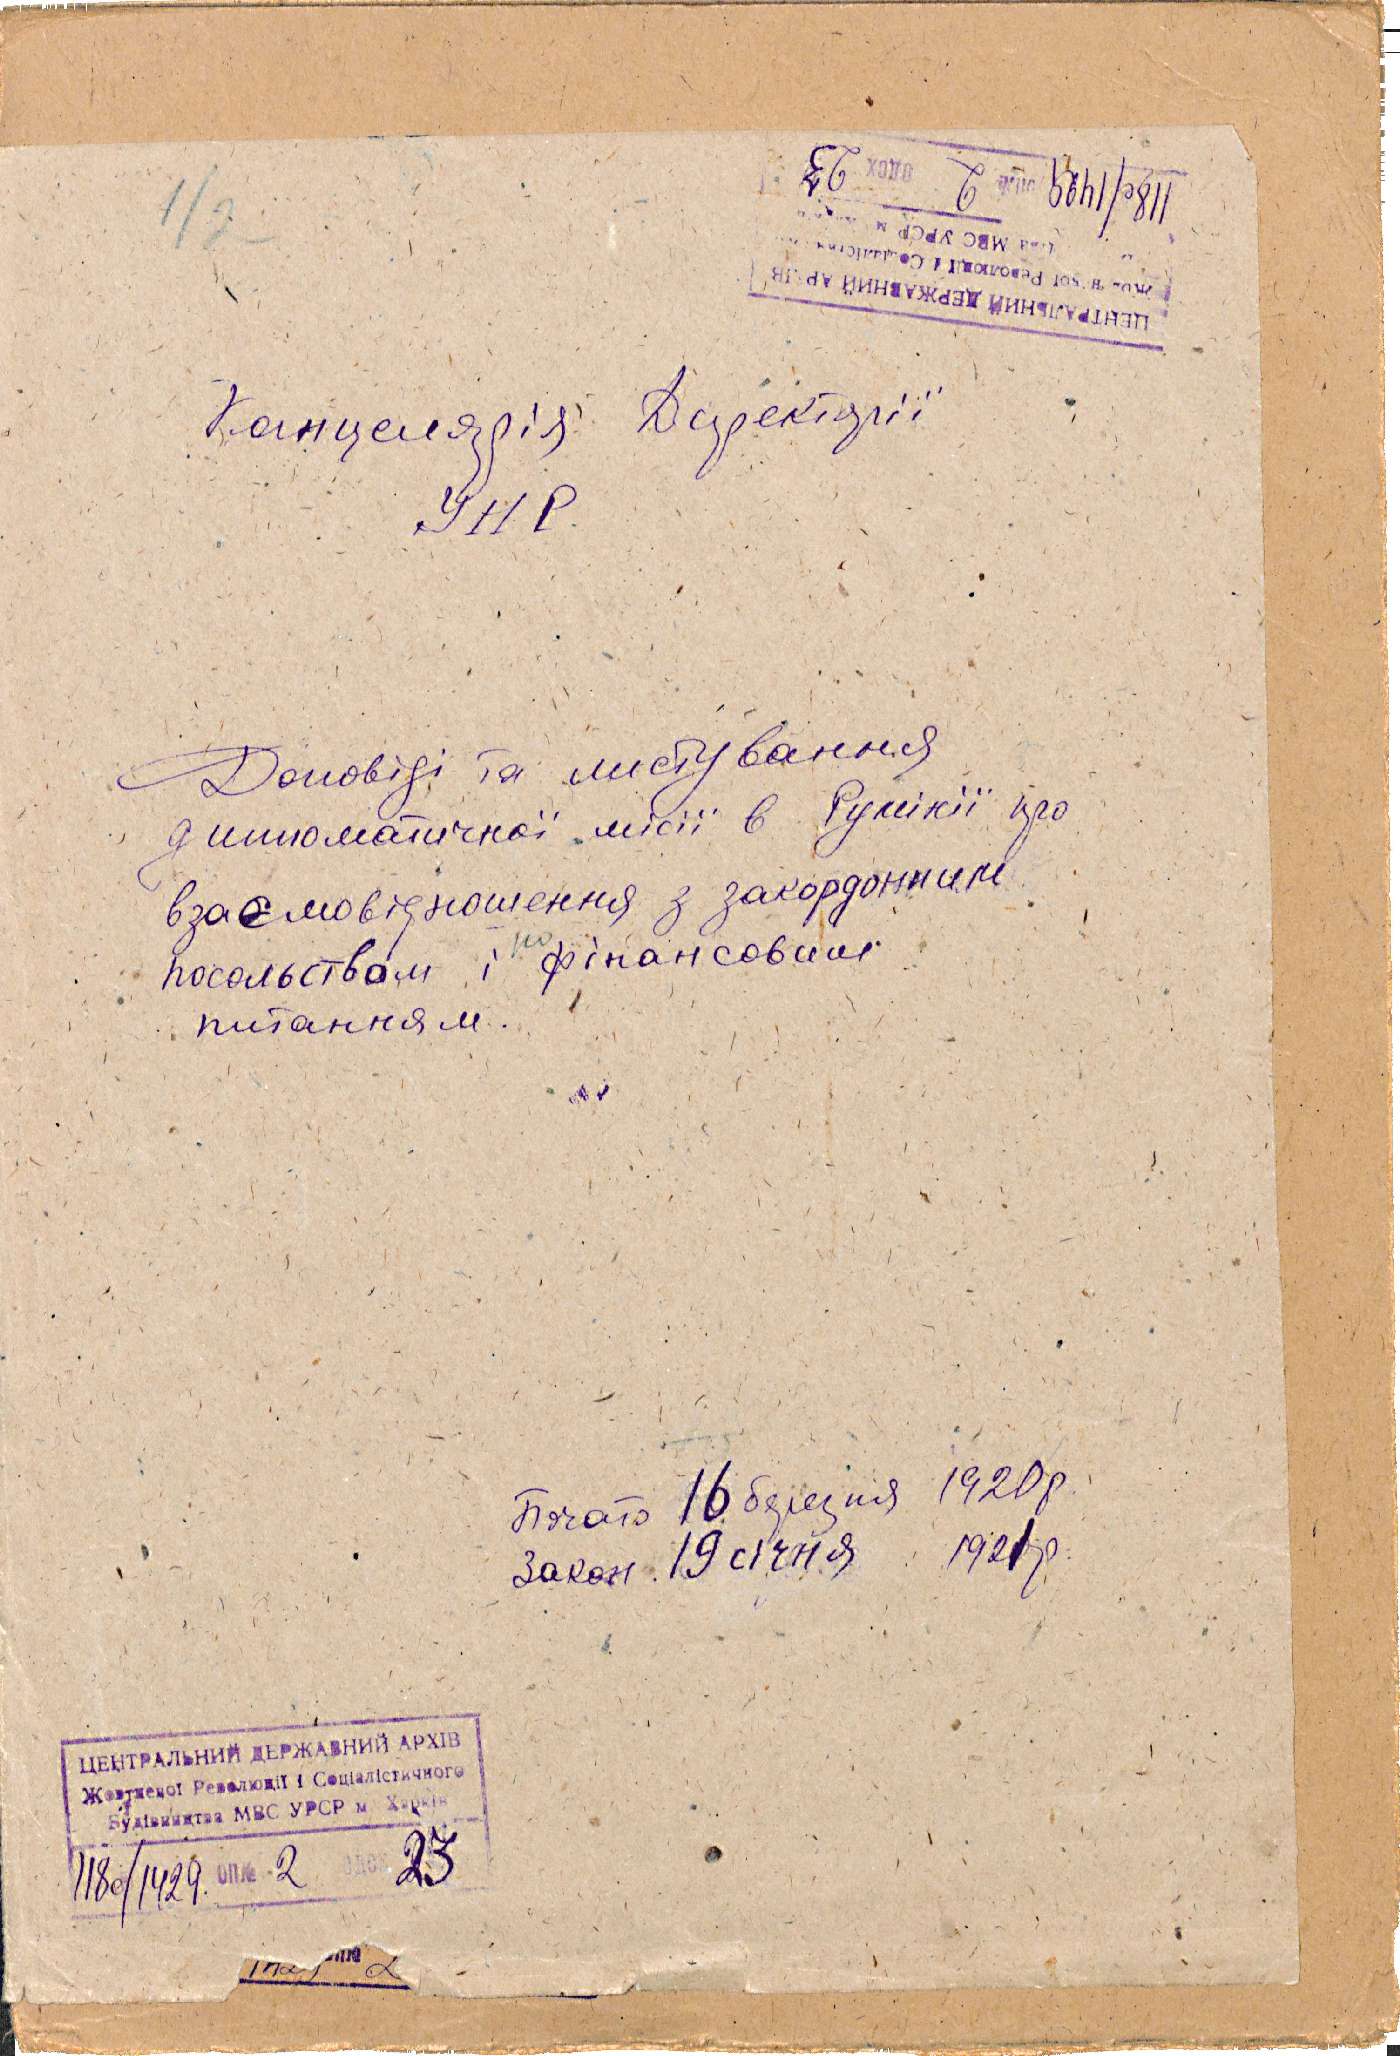 1/2
118с/1429 опис 2 одсх 23
МВС УРСР м
Революції і Соціалістич
ЦЕНТРАЛЬНИЙ ДЕРЖАВНИЙ АРХІВ
Канцелярія Директорії
УНР
Доповіді та листування
дипломатичної місії в Румінії про
взаємовідношення з закордонним
посольствам і по фінансовим
питанням.
Почато 16 березня 1920 р.
Закон. 19 січня 1921 р.
ЦЕНТРАЛЬНИЙ ДЕРЖАВНИЙ АРХІВ
Жовтневої Революції і Соціалістичного
Будівництва МВС УРСР м Харків
118с/1429. опис 2 одсх 23
1429 2